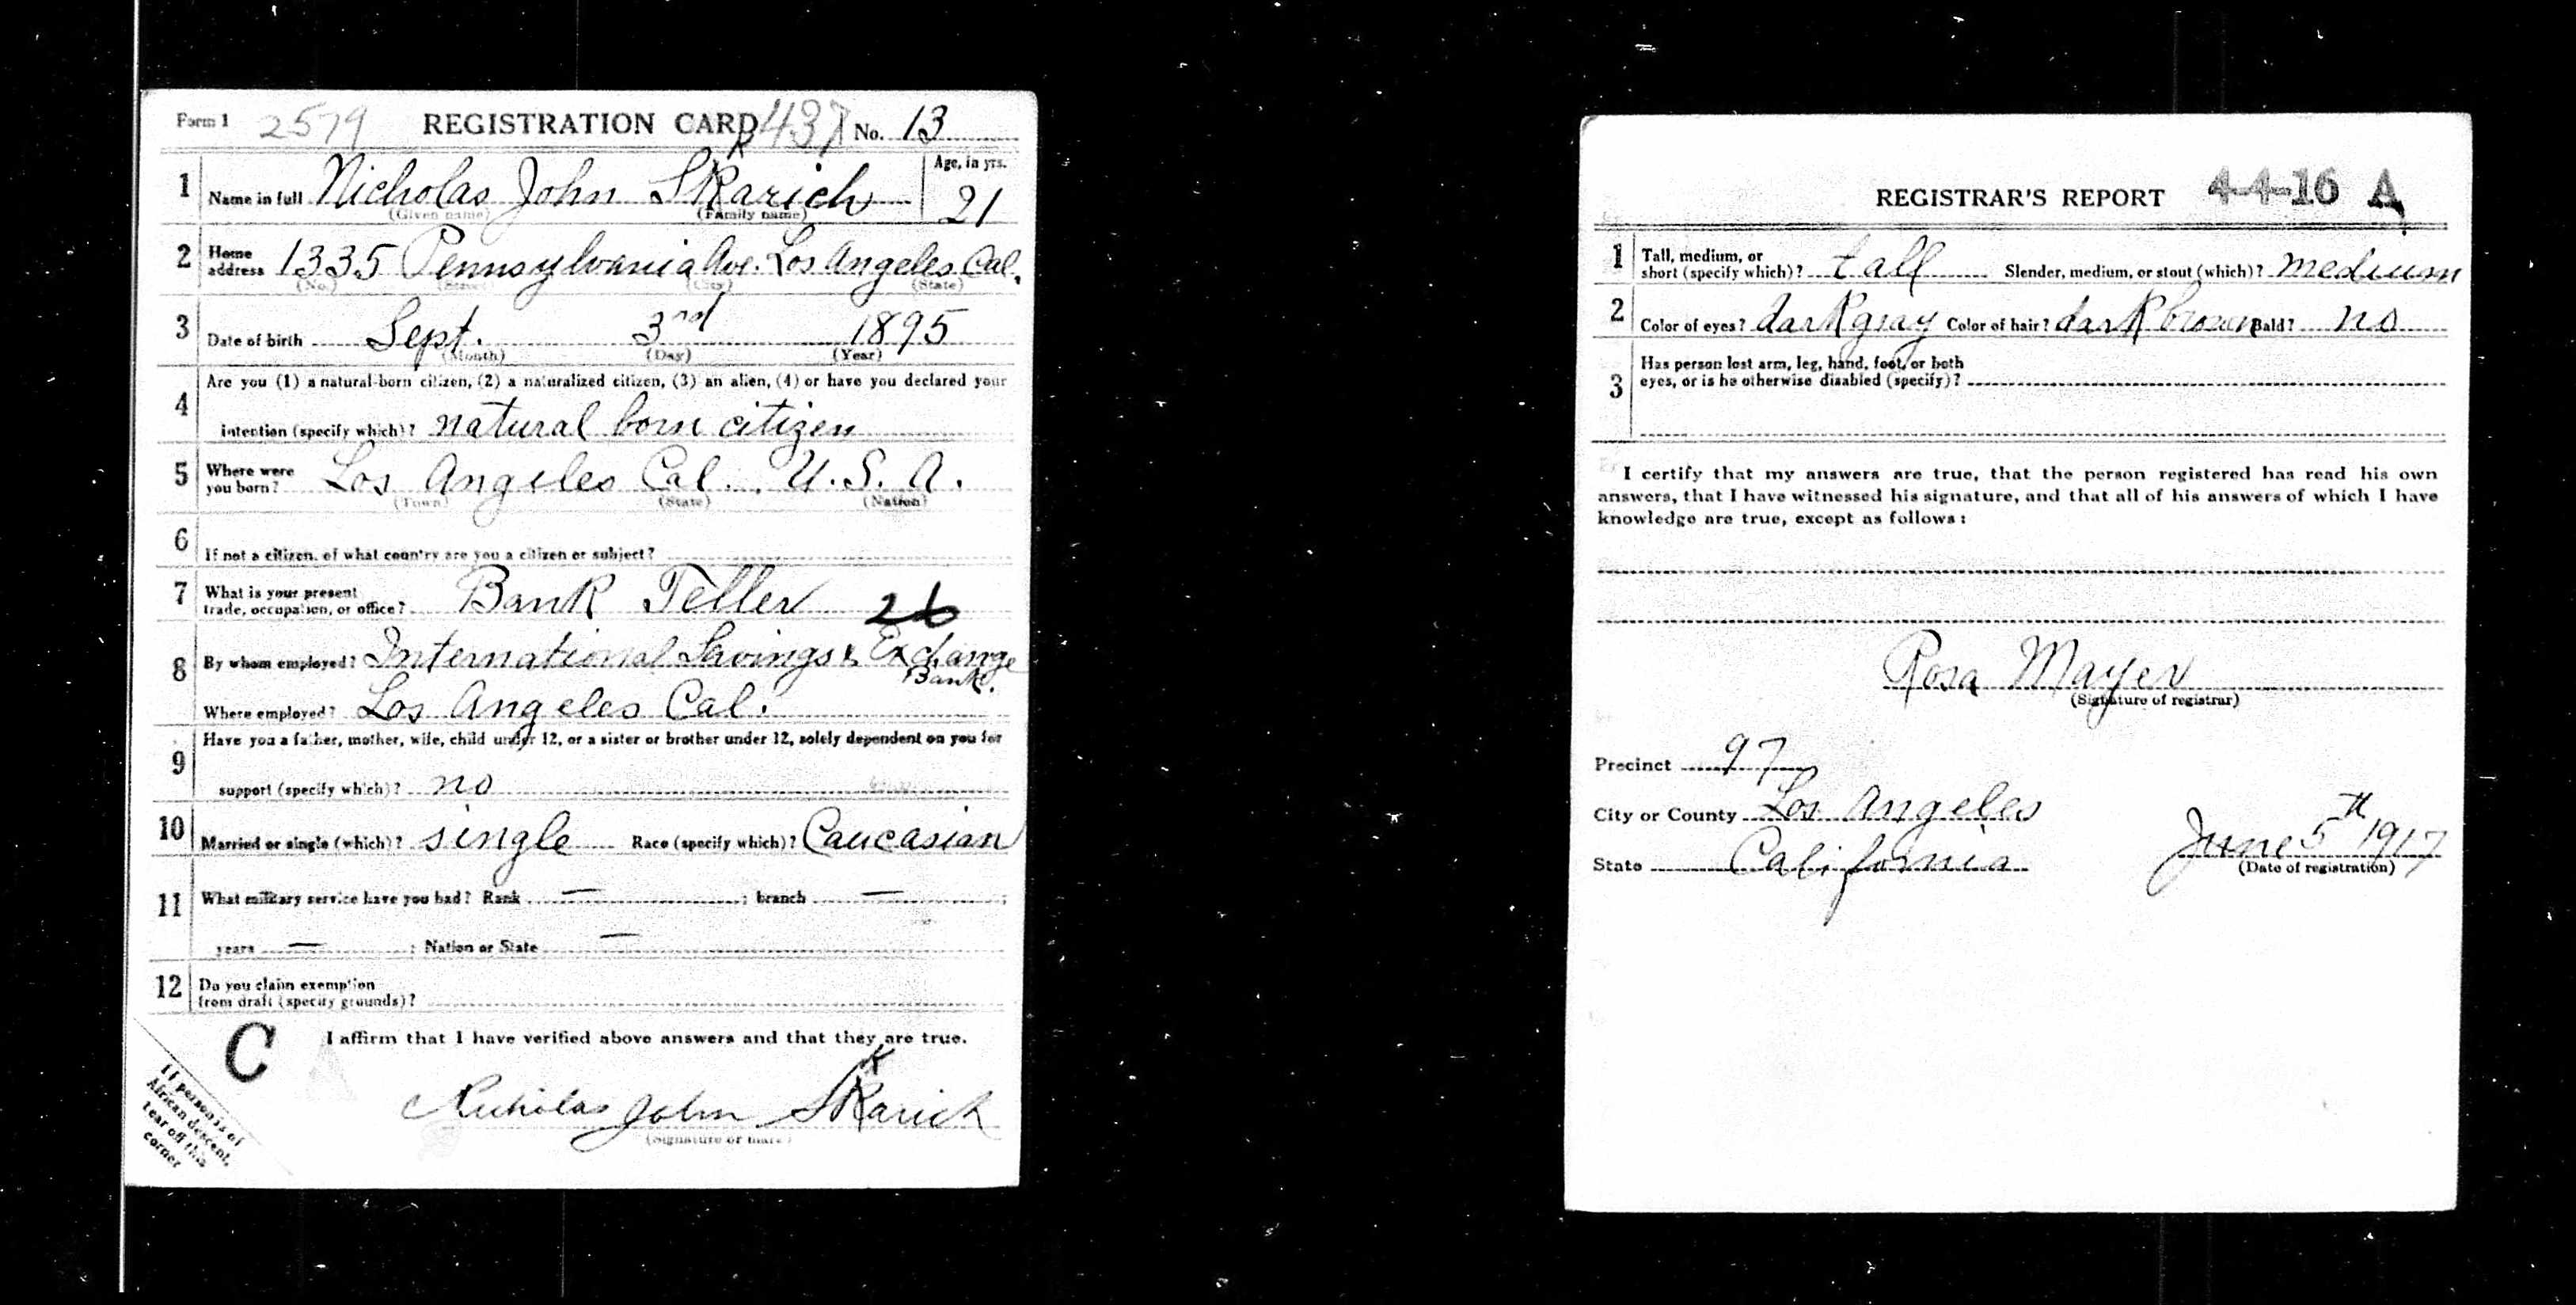 Form 1 2579 REGISTRATION CARD 437 No. 13
1 Name in full Nicholas John Skarich Age, in yrs.
(Given name) (Family name) 21
2 Home address 1335 Pennsylvania Ave. Los Angeles Cal.
(No.) (Street) (City) (State)
3 Date of birth Sept. 3rd 1895
(Month) (Day) (Year)
4 Are you (1) a natural-born citizen, (2) a naturalized citizen, (3) an alien, (4) or have you declared your
intention (specify which)? natural born citizen
5 Where were you born? Los Angeles Cal. U.S.A.
(Town) (State) (Nation)
6 If not a citizen, of what country are you a citizen or subject?
7 What is your present
trade, occupation, or office? Bank Teller 26
8 By whom employed? International Savings & Exchange
Bank.
Where employed? Los Angeles Cal.
9 Have you a father, mother, wife, child under 12, or a sister or brother under 12, solely dependent on you for
support (specify which)? no
10 Married or single (which)? single Race (specify which)? Caucasian
11 What military service have you had? Rank — ; branch — ;
years — ; Nation or State —
12 Do you claim exemption
from draft (specify grounds)?
C I affirm that I have verified above answers and that they are true.
K
Nicholas John Skarich
(Signature or mark)
If person is of
African descent,
tear off this
corner
REGISTRAR'S REPORT 4-4-16 A
1 Tall, medium, or
short (specify which)? tall Slender, medium, or stout (which)? medium
2 Color of eyes? dark gray Color of hair? dark brown Bald? no
3 Has person lost arm, leg, hand, foot, or both
eyes, or is he otherwise disabled (specify)?
I certify that my answers are true, that the person registered has read his own
answers, that I have witnessed his signature, and that all of his answers of which I have
knowledge are true, except as follows:
Rosa Mayer
(Signature of registrar)
Precinct 97
City or County Los Angeles
State California June 5th 1917
(Date of registration)